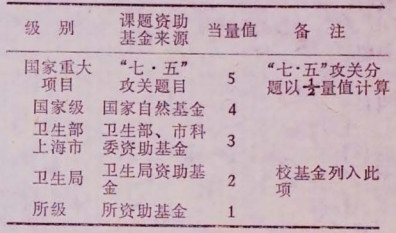 级 别 课题资助基金来源 当量值 备 注
国家重大项目 “七·五”攻关题目 5 “七·五”攻关分题以½量值计算
国家级 国家自然基金 4
卫生部上海市 卫生部、市科委资助基金 3
卫生局 卫生局资助基金 2 校基金列入此项
所级 所资助基金 1